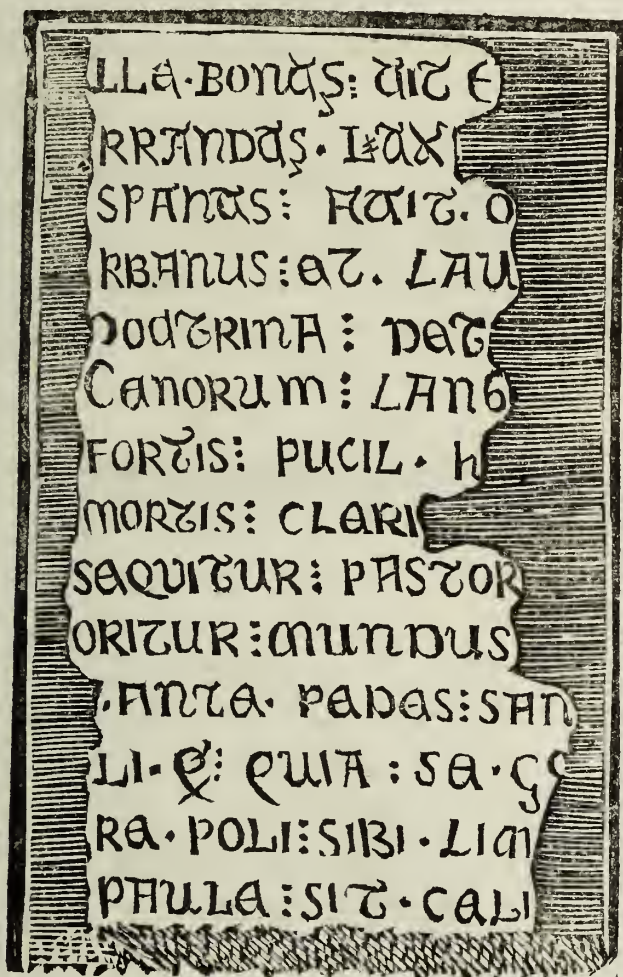 LLE·BONUS⁝ UIT E
RRANDUS· LUX
SPANUS⁝ FUIT· O
RBANUS⁝ET· LAU
DOCTRINA⁝ DET
CENORUM⁝ LANG
FORTIS⁝ PUCIL· H
MORTIS⁝ CLERI
SEQUITUR⁝ PASTOR
ORITUR⁝MUNDUS
ANTE· PEDES⁝SAN
LI·Q⁝ QUIA : SE·
RE·POLI⁝SIBI·LIM
PAULE⁝SIT·CELI